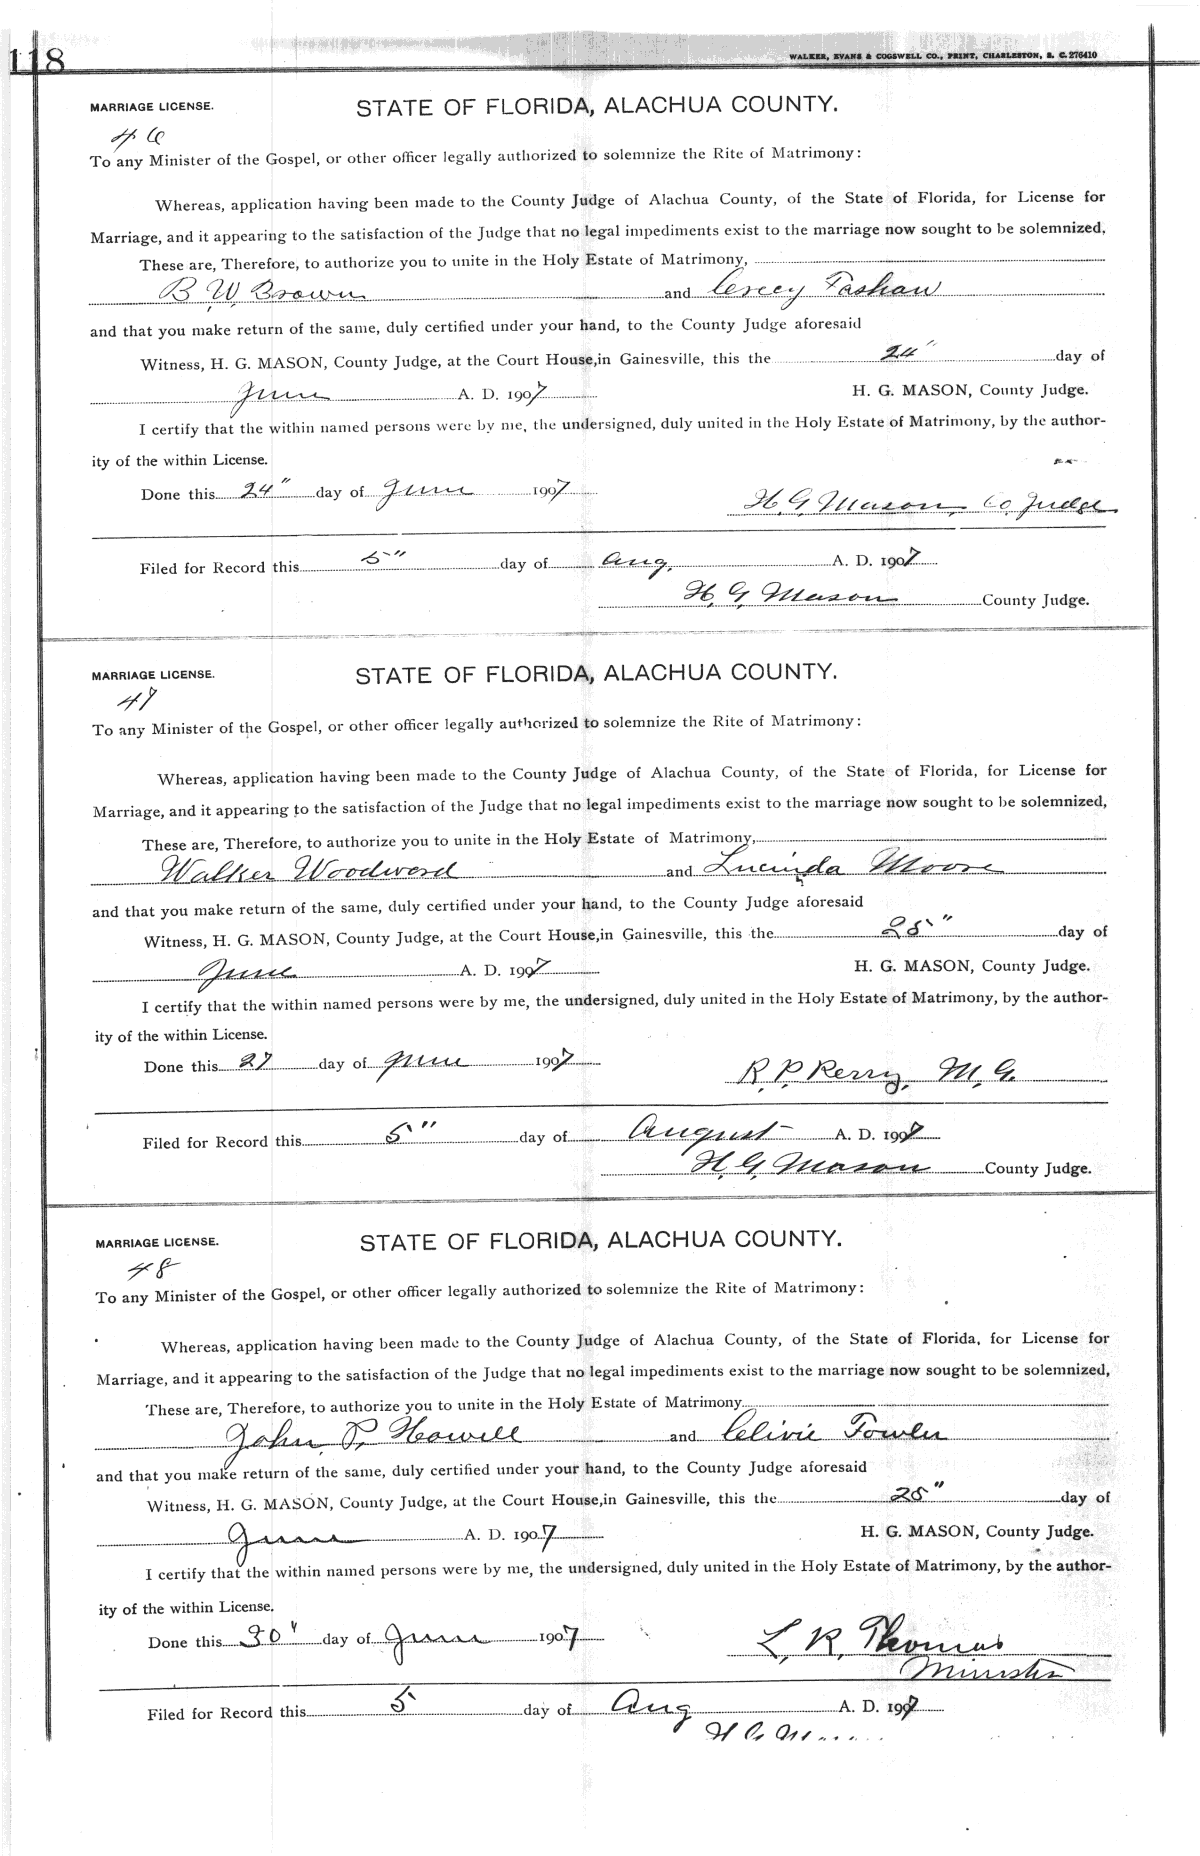 118
WALKER, EVANS & COGSWELL CO., PRINT, CHARLESTON, S. C. 276410
MARRIAGE LICENSE. STATE OF FLORIDA, ALACHUA COUNTY.
46
To any Minister of the Gospel, or other officer legally authorized to solemnize the Rite of Matrimony:
Whereas, application having been made to the County Judge of Alachua County, of the State of Florida, for License for
Marriage, and it appearing to the satisfaction of the Judge that no legal impediments exist to the marriage now sought to be solemnized,
These are, Therefore, to authorize you to unite in the Holy Estate of Matrimony,
B. W. Brown and
and that you make return of the same, duly certified under your hand, to the County Judge aforesaid
Witness, H. G. MASON, County Judge, at the Court House, in Gainesville, this the 24" day of
June A. D. 1907 H. G. MASON, County Judge.
I certify that the within named persons were by me, the undersigned, duly united in the Holy Estate of Matrimony, by the author-
ity of the within License.
Done this 24" day of June 1907 H. G. Mason, Co. Judge
Filed for Record this 5" day of Aug, A. D. 1907
H. G. Mason County Judge.
MARRIAGE LICENSE. STATE OF FLORIDA, ALACHUA COUNTY.
47
To any Minister of the Gospel, or other officer legally authorized to solemnize the Rite of Matrimony:
Whereas, application having been made to the County Judge of Alachua County, of the State of Florida, for License for
Marriage, and it appearing to the satisfaction of the Judge that no legal impediments exist to the marriage now sought to be solemnized,
These are, Therefore, to authorize you to unite in the Holy Estate of Matrimony,
Walker Woodward and Lucinda Moore
and that you make return of the same, duly certified under your hand, to the County Judge aforesaid
Witness, H. G. MASON, County Judge, at the Court House, in Gainesville, this the 25" day of
June A. D. 1907 H. G. MASON, County Judge.
I certify that the within named persons were by me, the undersigned, duly united in the Holy Estate of Matrimony, by the author-
ity of the within License.
Done this 27 day of June 1907 R. P. Perry, M. G.
Filed for Record this 5" day of August A. D. 1907
H. G. Mason County Judge.
MARRIAGE LICENSE. STATE OF FLORIDA, ALACHUA COUNTY.
48
To any Minister of the Gospel, or other officer legally authorized to solemnize the Rite of Matrimony:
Whereas, application having been made to the County Judge of Alachua County, of the State of Florida, for License for
Marriage, and it appearing to the satisfaction of the Judge that no legal impediments exist to the marriage now sought to be solemnized,
These are, Therefore, to authorize you to unite in the Holy Estate of Matrimony
John P. Howell and Clivie Fowler
and that you make return of the same, duly certified under your hand, to the County Judge aforesaid
Witness, H. G. MASON, County Judge, at the Court House, in Gainesville, this the 25" day of
June A. D. 1907 H. G. MASON, County Judge.
I certify that the within named persons were by me, the undersigned, duly united in the Holy Estate of Matrimony, by the author-
ity of the within License.
Done this 30" day of June 1907 L. R. Thomas
Minister
Filed for Record this 5 day of Aug A. D. 1907
H G M